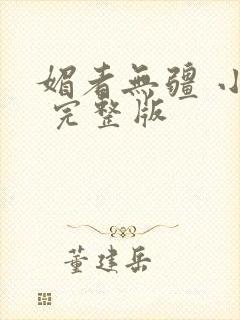 媚者無疆 小
完整版
董建岳